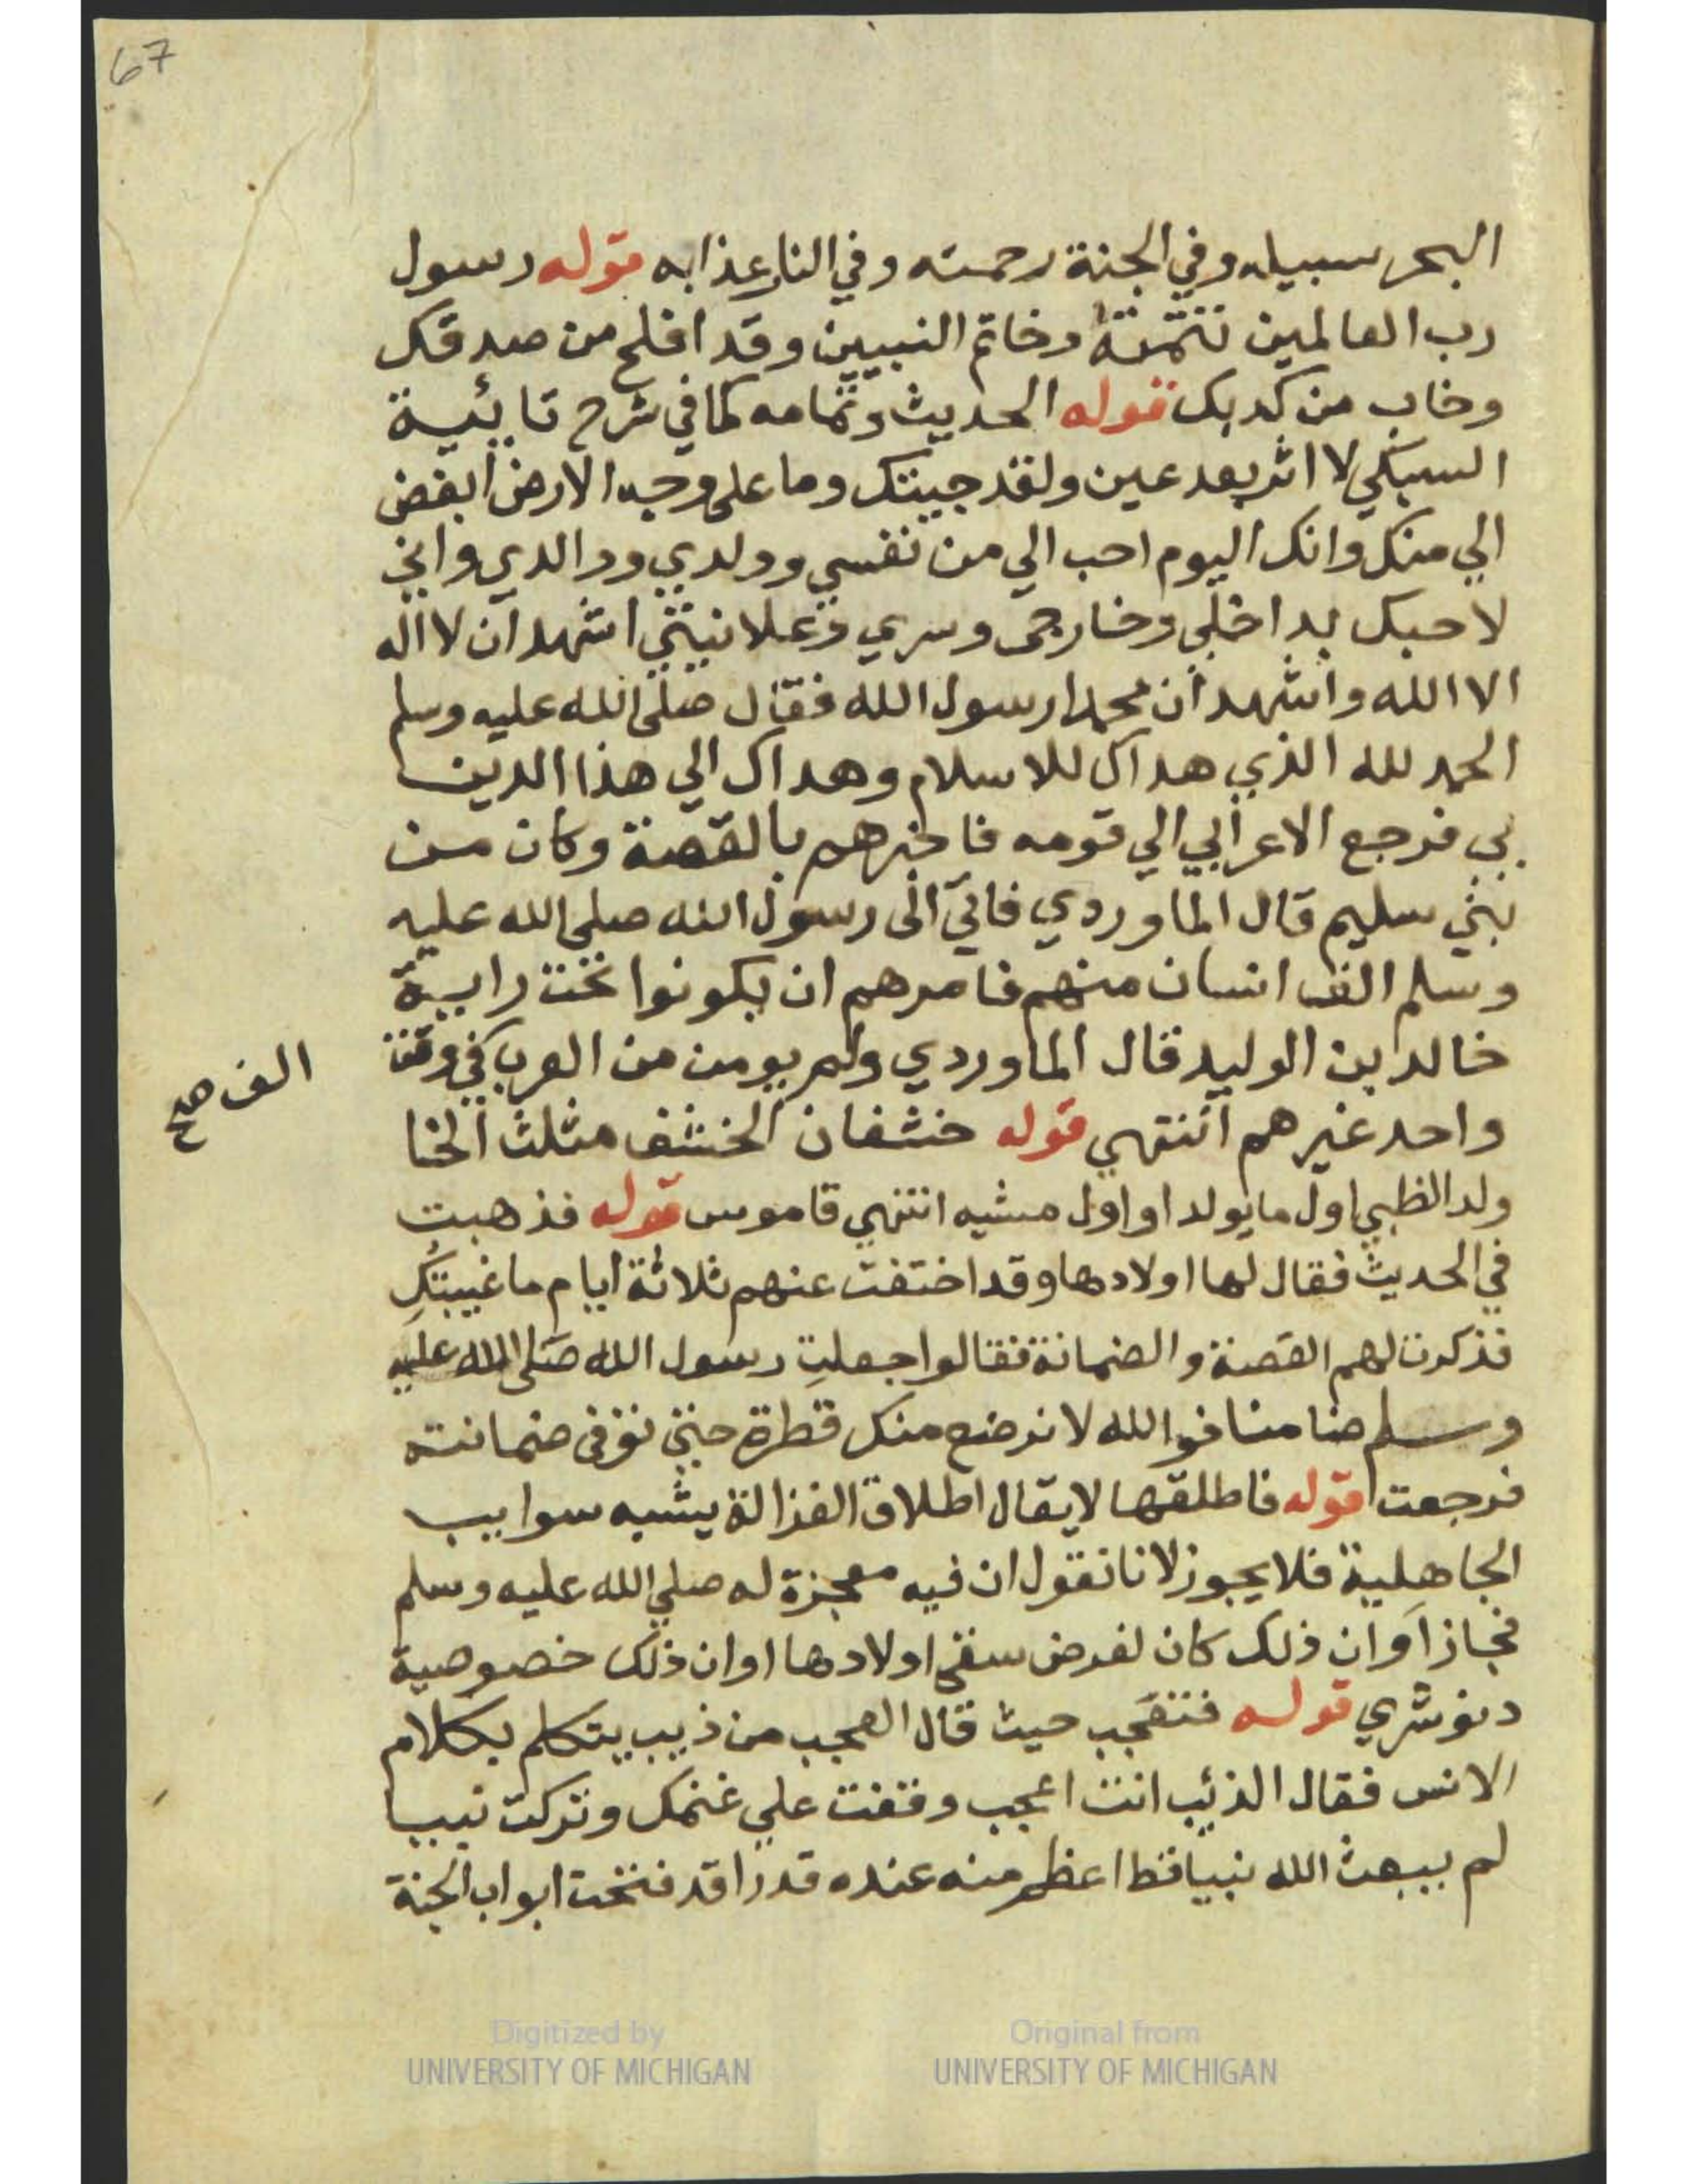 67
البحر سبيله وفي الجنة رحمته وفي النار عذابه قوله رسول
رب العالمين تتمته وخاتم النبيين وقد افلح من صدقك
وخاب من كذبك قوله الحديث وتمامه كما في شرح تائية
السبكي لا اثر بعد عين ولقد جيتك وما على وجه الارض ابغض
الي منك وانك اليوم احب الي من نفسي وولدي ووالدي واني
لاحبك بداخلي وخارجي وسري وعلانيتي اشهد ان لا اله
الا الله واشهد ان محمدا رسول الله فقال صلى الله عليه وسلم
الحمد لله الذي هداك للاسلام وهداك الي هذا الدين
بي فرجع الاعرابي الي قومه فاخبرهم بالقصة وكان من
بني سليم قال الماوردي فاتي الى رسول الله صلي الله عليه
وسلم الف انسان منهم فامرهم ان يكونوا تحت راية
خالد بن الوليد قال الماوردي ولم يومن من العرب في وقت
الف صح
واحد غيرهم انتهي قوله خشفان الخشف مثلث الخا
ولد الظبي اول ما يولد او اول مشيه انتهي قاموس قوله فذهبت
في الحديث فقال لها اولادها وقد اختفت عنهم ثلاثة ايام ما غيبتكِ
فذكرت لهم القصة والضمانة فقالوا جعلتِ رسول الله صلى الله عليه
وسلم ضامنا فوالله لا نرضع منك قطرة حتي نوفى ضمانته
فرجعت قوله فاطلقها لا يقال اطلاق الغزالة يشبه سوايب
الجاهلية فلا يجوز لانا نقول ان فيه معجزة له صلي الله عليه وسلم
فجاز او ان ذلك كان لغرض سقي اولادها او ان ذلك خصوصية
دنوشري قوله فتعجب حيث قال العجب من ذيب يتكلم بكلام
الانس فقال الذئب انت اعجب وقفت علي غنمك وتركت نبيا
لم يبعث الله نبيا قط اعظم منه عنده قدرا قد فتحت ابواب الجنة
Digitized by
UNIVERSITY OF MICHIGAN
Original from
UNIVERSITY OF MICHIGAN